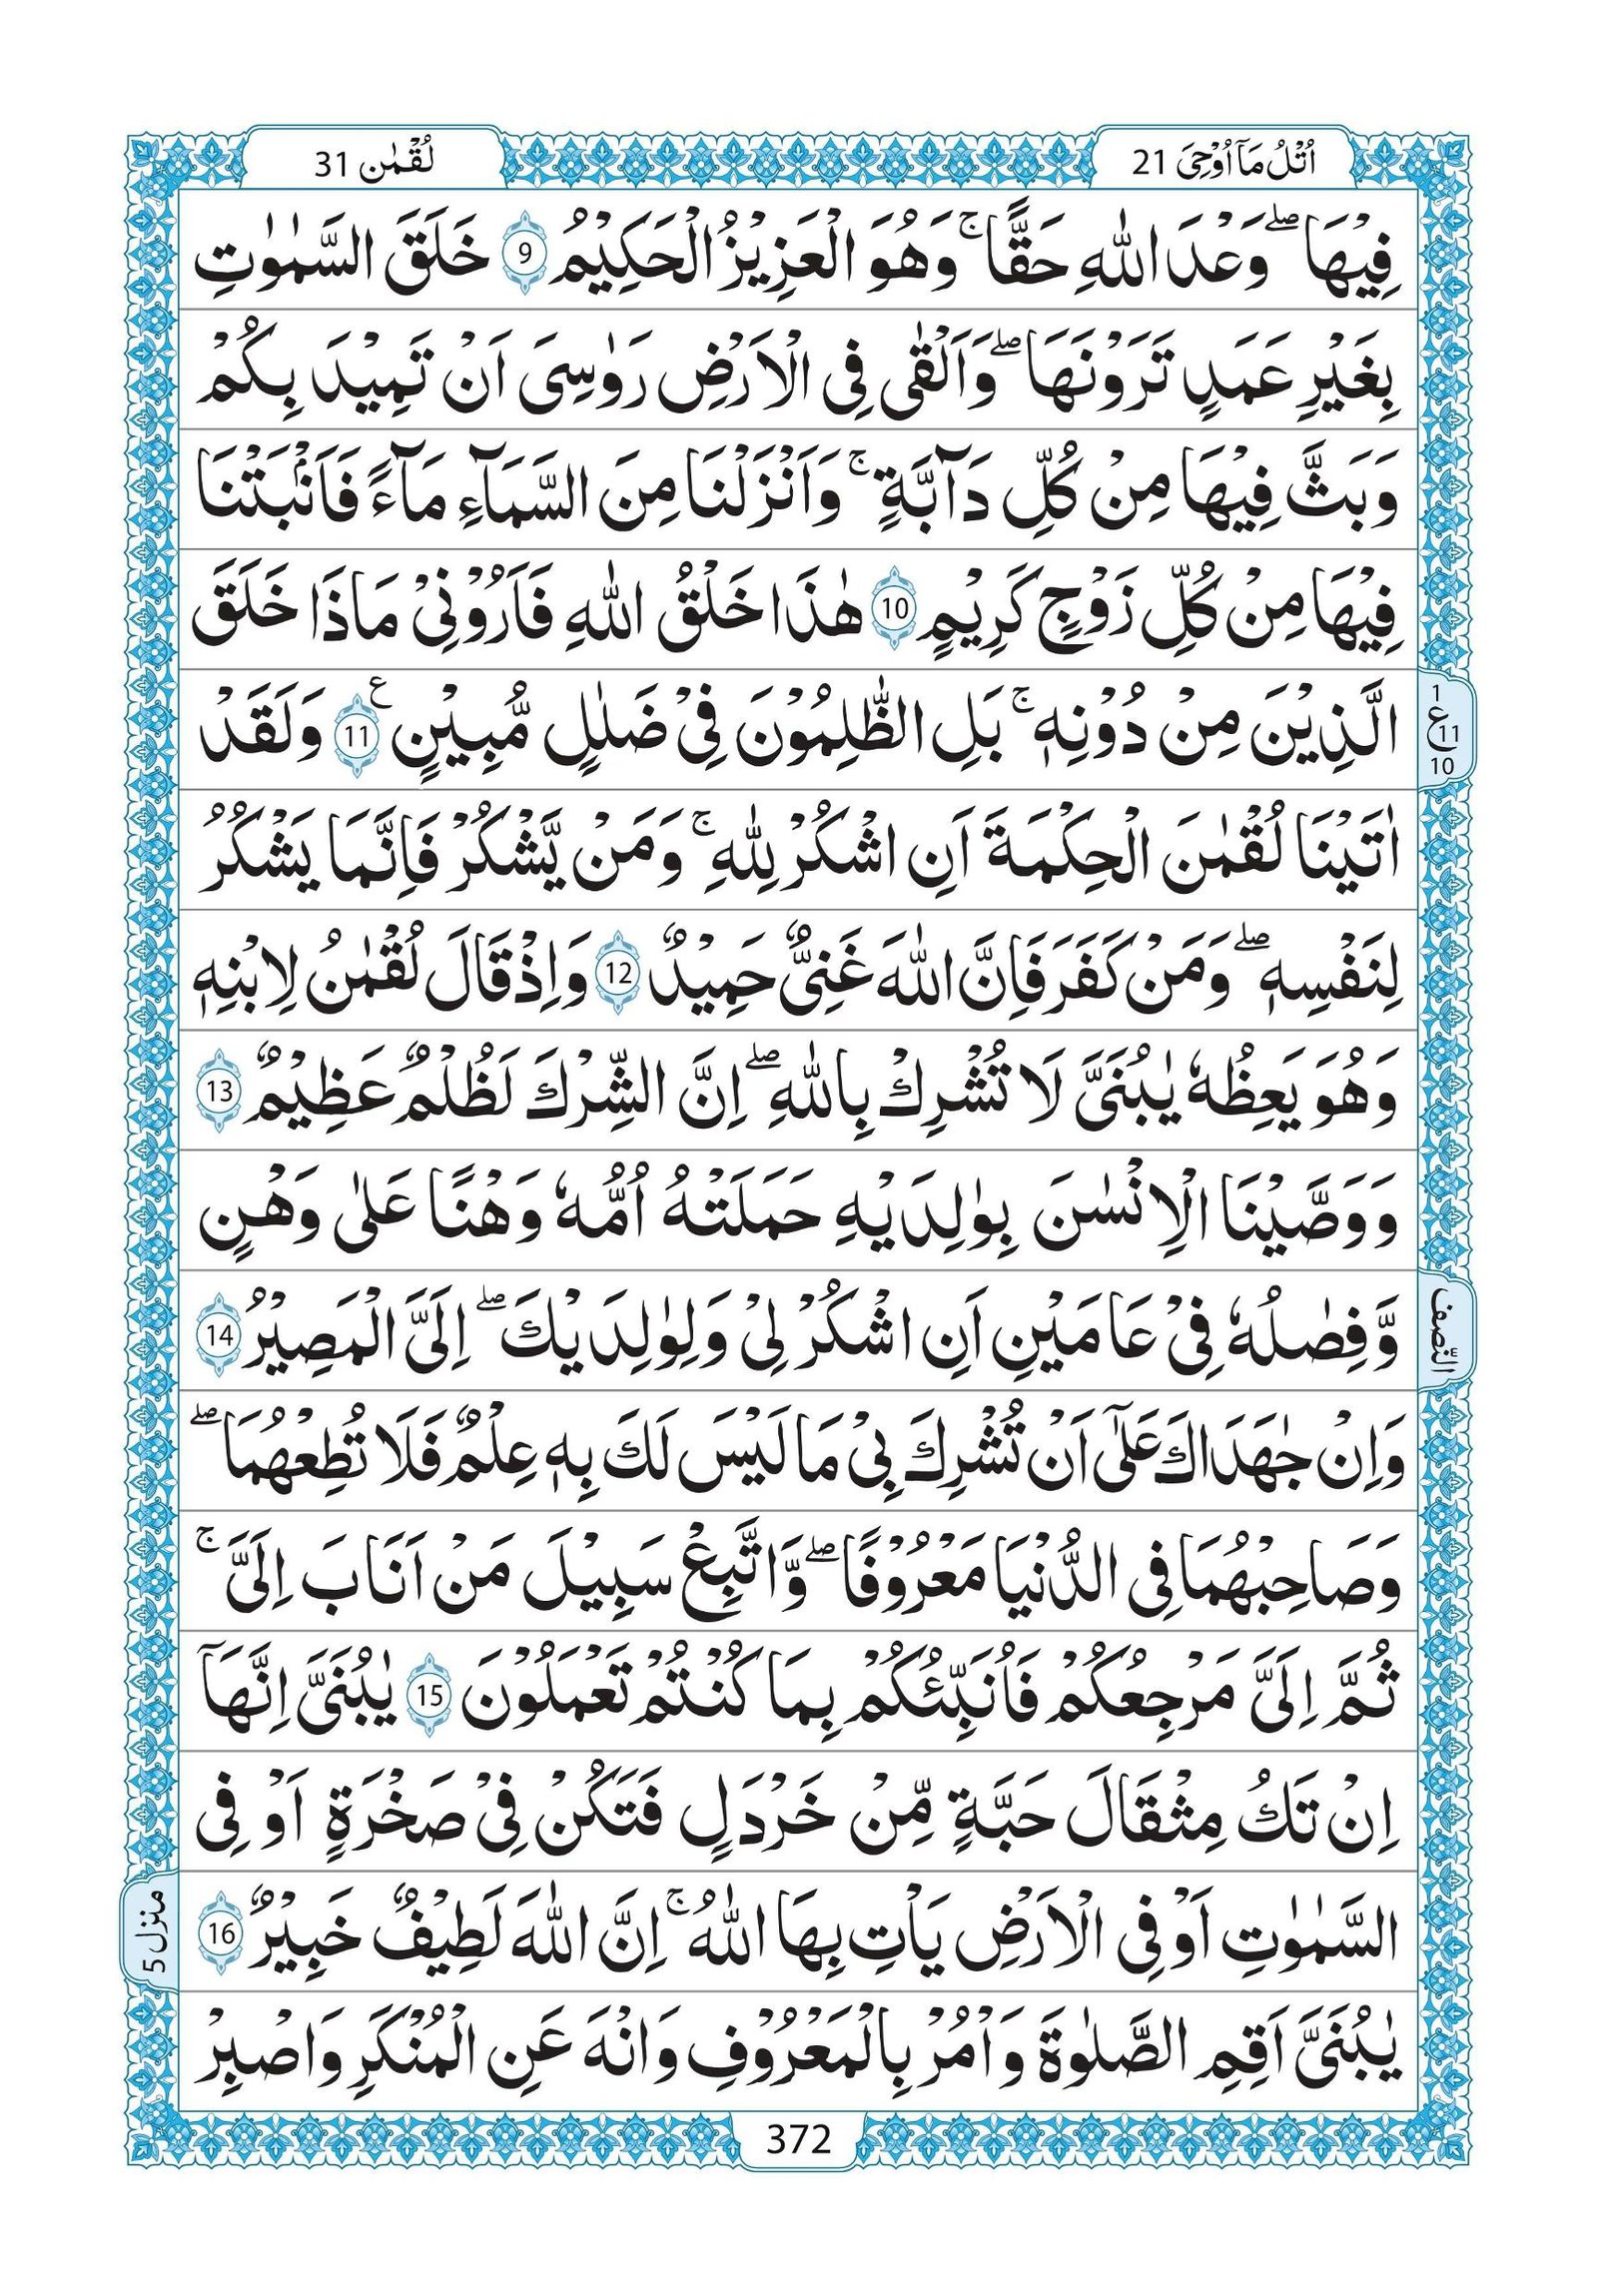 اُتْلُ مَآ اُوْحِیَ 21
لُقْمٰن 31
فِیْهَا ۖ وَعْدَ اللّٰهِ حَقًّا ۚ وَهُوَ الْعَزِیْزُ الْحَكِیْمُ 9 خَلَقَ السَّمٰوٰتِ
بِغَیْرِ عَمَدٍ تَرَوْنَهَا ۖ وَاَلْقٰی فِی الْاَرْضِ رَوٰسِیَ اَنْ تَمِیْدَ بِكُمْ
وَبَثَّ فِیْهَا مِنْ كُلِّ دَآبَّةٍ ۚ وَاَنْزَلْنَا مِنَ السَّمَآءِ مَآءً فَاَنْۢبَتْنَا
فِیْهَا مِنْ كُلِّ زَوْجٍ كَرِیْمٍ 10 هٰذَا خَلْقُ اللّٰهِ فَاَرُوْنِیْ مَاذَا خَلَقَ
الَّذِیْنَ مِنْ دُوْنِهٖ ۚ بَلِ الظّٰلِمُوْنَ فِیْ ضَلٰلٍ مُّبِیْنٍ ع 11 وَلَقَدْ
1
ع 11
10
اٰتَیْنَا لُقْمٰنَ الْحِكْمَةَ اَنِ اشْكُرْ لِلّٰهِ ۚ وَمَنْ یَّشْكُرْ فَاِنَّمَا یَشْكُرُ
لِنَفْسِهٖ ۖ وَمَنْ كَفَرَ فَاِنَّ اللّٰهَ غَنِیٌّ حَمِیْدٌ 12 وَاِذْ قَالَ لُقْمٰنُ لِابْنِهٖ
وَهُوَ یَعِظُهٗ یٰبُنَیَّ لَا تُشْرِكْ بِاللّٰهِ ۖ اِنَّ الشِّرْكَ لَظُلْمٌ عَظِیْمٌ 13
وَوَصَّیْنَا الْاِنْسٰنَ بِوٰلِدَیْهِ حَمَلَتْهُ اُمُّهٗ وَهْنًا عَلٰی وَهْنٍ
وَّفِصٰلُهٗ فِیْ عَامَیْنِ اَنِ اشْكُرْ لِیْ وَلِوٰلِدَیْكَ ۖ اِلَیَّ الْمَصِیْرُ 14
النّصف
وَاِنْ جٰهَدَاكَ عَلٰٓی اَنْ تُشْرِكَ بِیْ مَا لَیْسَ لَكَ بِهٖ عِلْمٌ فَلَا تُطِعْهُمَا ۖ
وَصَاحِبْهُمَا فِی الدُّنْیَا مَعْرُوْفًا ۖ وَّاتَّبِعْ سَبِیْلَ مَنْ اَنَابَ اِلَیَّ ۚ
ثُمَّ اِلَیَّ مَرْجِعُكُمْ فَاُنَبِّئُكُمْ بِمَا كُنْتُمْ تَعْمَلُوْنَ 15 یٰبُنَیَّ اِنَّهَآ
اِنْ تَكُ مِثْقَالَ حَبَّةٍ مِّنْ خَرْدَلٍ فَتَكُنْ فِیْ صَخْرَةٍ اَوْ فِی
السَّمٰوٰتِ اَوْ فِی الْاَرْضِ یَاْتِ بِهَا اللّٰهُ ۚ اِنَّ اللّٰهَ لَطِیْفٌ خَبِیْرٌ 16
منزل 5
یٰبُنَیَّ اَقِمِ الصَّلٰوةَ وَاْمُرْ بِالْمَعْرُوْفِ وَانْهَ عَنِ الْمُنْكَرِ وَاصْبِرْ
372